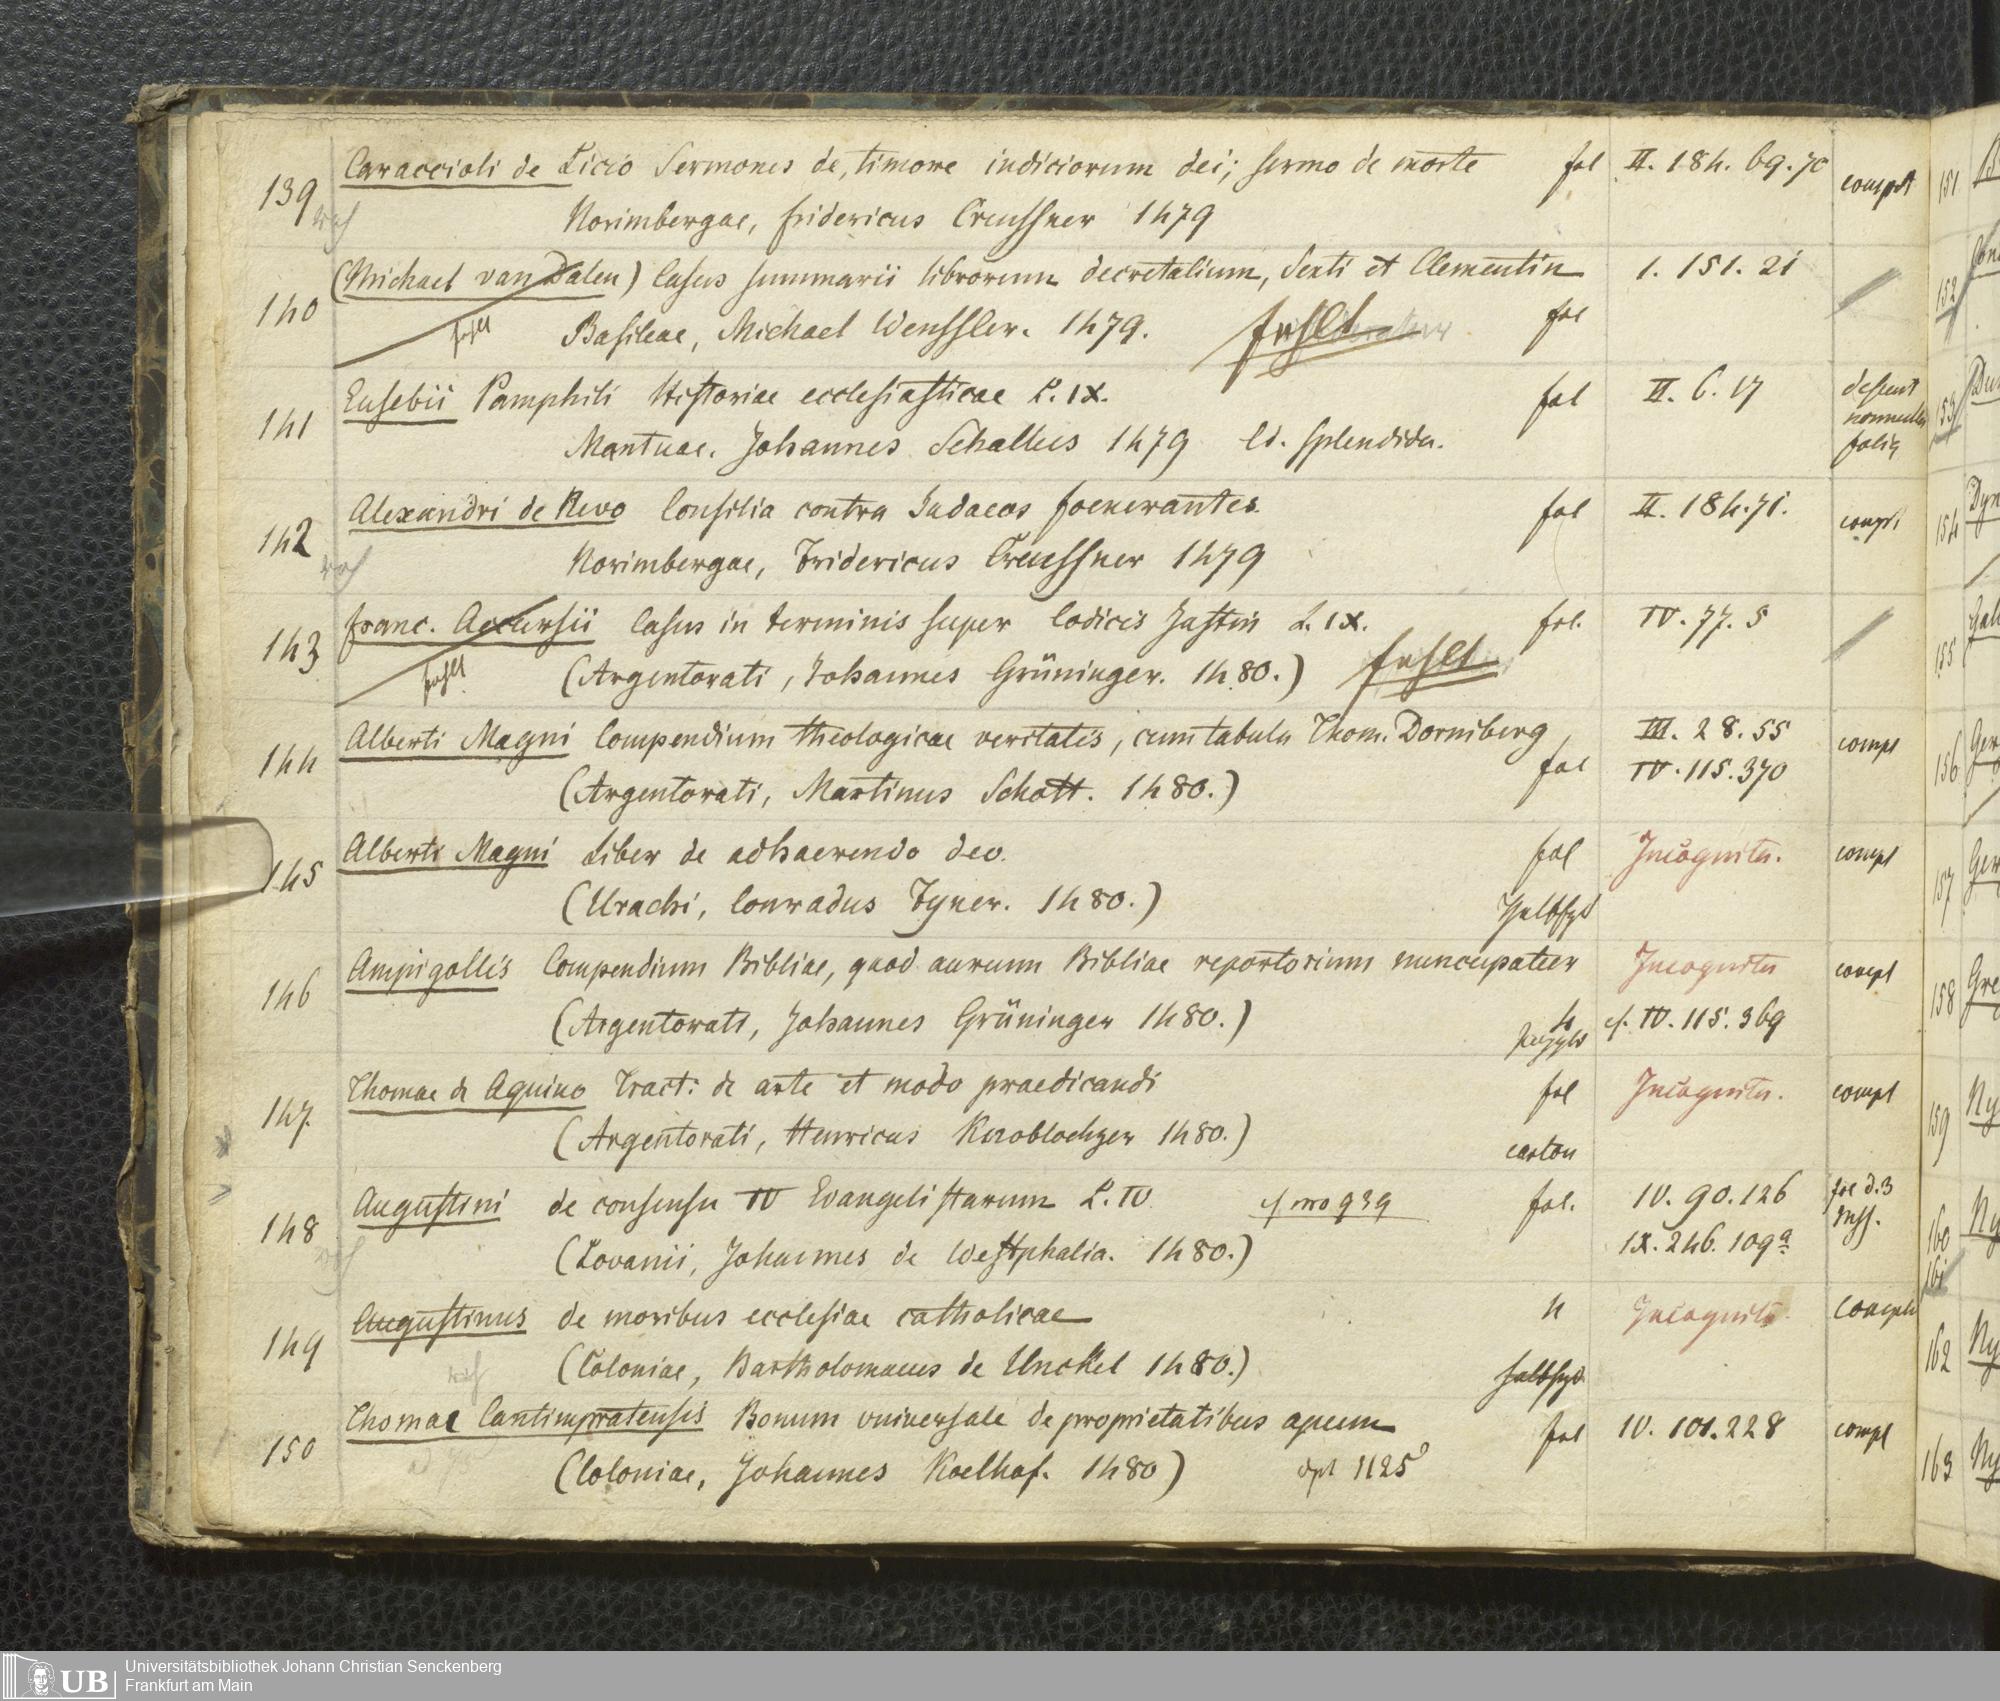 139 Caraccioli de Licio Sermones de timore iudiciorum dei; sermo de morte fol II. 184. 69.70 complt
Norimbergae, fridericus Creussner 1479
140 (Michael van Dalen) Casus summarii librorum decretalium, Sexti et Clementin 1. 151. 21
fehlt Basileae, Michael Wenssler. 1479. fehlt fol
141 Eusebii Pamphili Historiae ecclesiasticae L. IX. fol II. 6. 17 desunt
nonnulla
folia
Mantuae. Johannes Schallus 1479 Ed. splendida.
142 Alexandri de Nevo Consilia contra Judaeos foenerantes. fol II. 184.71. complt
Norimbergae, Fridericus Creussner 1479
143 franc. Accursii Casus in terminis super Codicis Justin L. IX. fol. IV. 77. 5
fehlt (Argentorati, Johannes Grüninger. 1480.) fehlt
144 Alberti Magni Compendium theologicae veritatis, cum tabula Thom. Dorniberg III. 28. 55 compl
(Argentorati, Martinus Schott. 1480.) fol IV. 115. 370
145 Alberti Magni Liber de adhaerendo deo. fol Incognita. compl
(Urachi, Conradus Fyner. 1480.)
146 Ampigollis Compendium Bibliae, quod aureum Bibliae repertorium nuncupatur Incognita compl
(Argentorati, Johannes Grüninger 1480.) 4 cf. IV. 115. 369
147. Thomae de Aquino Tract: de arte et modo praedicandi fol Incognita. compl
(Argentorati, Henricus Knoblochzer 1480.) carton
148 Augustini de consensu IV Evangelistarum L. IV. cf nro 939 fol. IV. 90. 126
(Lovanii, Johannes de Westphalia. 1480.) IX. 246. 109a
149 Augustinus de moribus ecclesiae catholicae 4 Incognita
(Coloniae, Bartholomaeus de Unckel 1480.)
150 Thomae Cantimpratensis Bonum universale de proprietatibus apum fol IV. 101. 228 compl
(Coloniae, Johannes Koelhof. 1480) dpl 1125
151
152
153
154
155
156
157
158
159
160
161
162
163
UB
Universitätsbibliothek Johann Christian Senckenberg
Frankfurt am Main